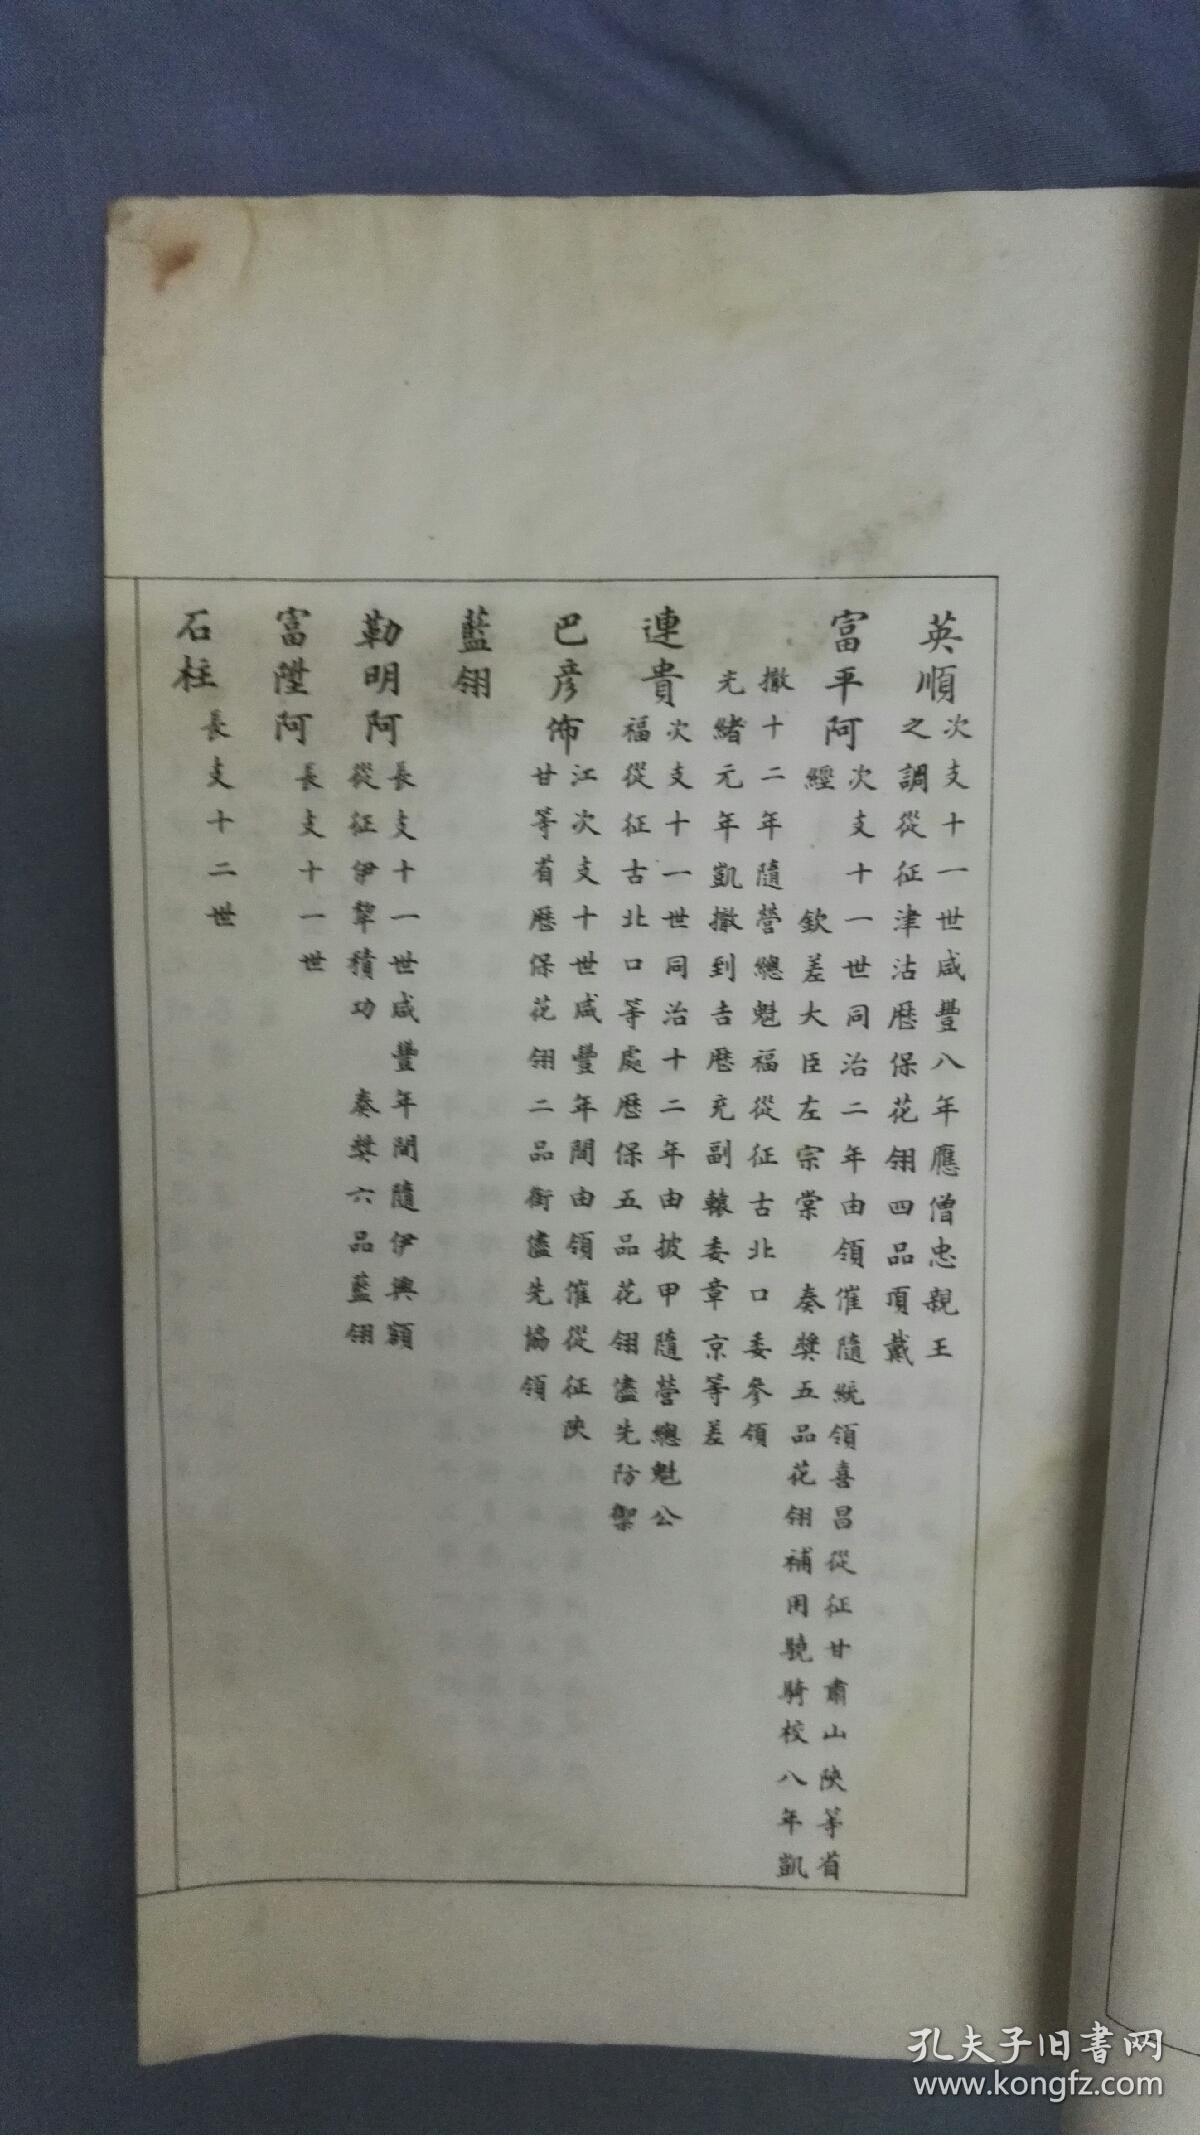 英順
次支十一世咸豐八年應僧忠親王
之調從征津沽歷保花翎四品頂戴
富平阿
次支十一世同治二年由領催隨統領喜昌從征甘肅山陝等省
經 欽差大臣左宗棠 奏獎五品花翎補用驍騎校八年凱
撤十二年隨營總魁福從征古北口委參領
光緒元年凱撤到吉歷充副轅委章京等差
連貴
次支十一世同治十二年由披甲隨營總魁公
福從征古北口等處歷保五品花翎儘先防禦
巴彥佈
江次支十世咸豐年間由領催從征陝
甘等省歷保花翎二品銜儘先協領
藍翎
勒明阿
長支十一世咸豐年間隨伊興額
從征伊犂積功 奏獎六品藍翎
富陞阿
長支十一世
石柱
長支十二世
孔夫子旧书网
www.kongfz.com